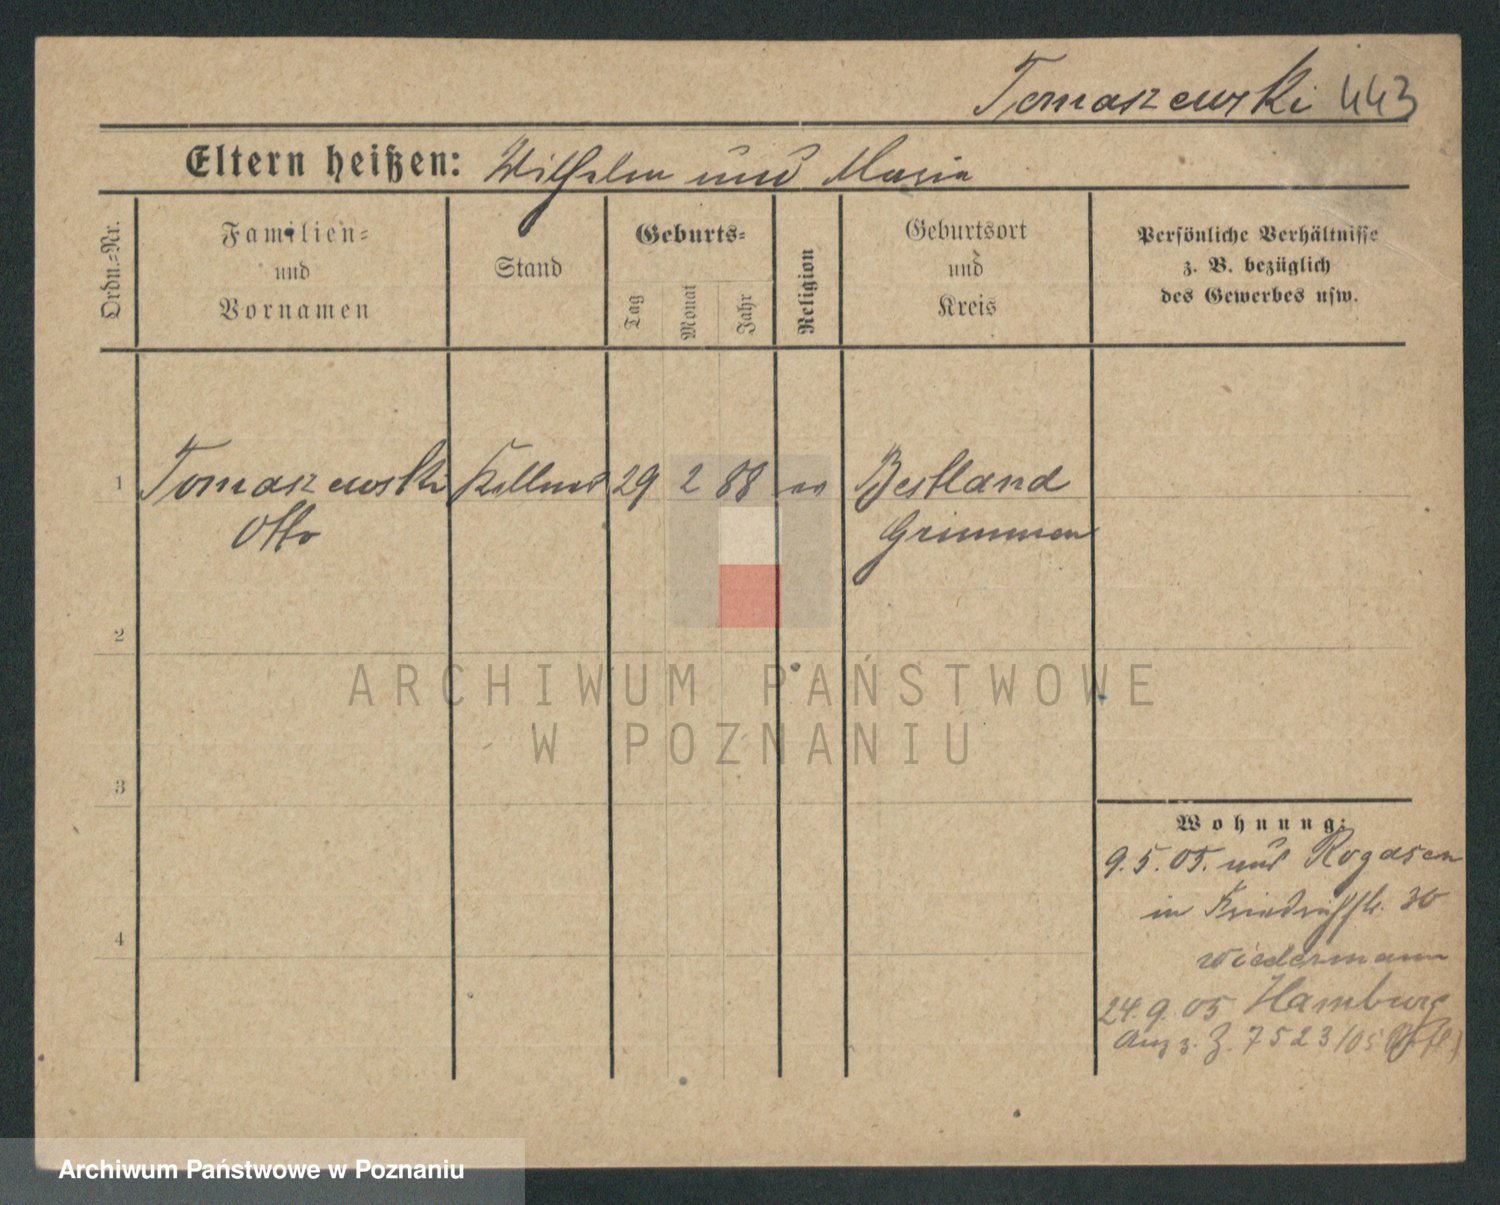 Tomaszewski 443
Eltern heißen: Wilhelm und Maria
Ordn.-Nr.
Familien-
und
Vornamen
Stand
Geburts-
Tag
Monat
Jahr
Religion
Geburtsort
und
Kreis
Persönliche Verhältnisse
z. B. bezüglich
des Gewerbes usw.
1 Tomaszewski Kellner 29 2 88 ev Bestland
Otto Grimmen
2
ARCHIWUM PAŃSTWOWE
W POZNANIU
3
4
Wohnung:
9.5.05. aus Rogasen
in Friedrichstr. 30
Wiedermann
24.9.05 Hamburg
Anz. z. Z. 7523/05
Archiwum Państwowe w Poznaniu